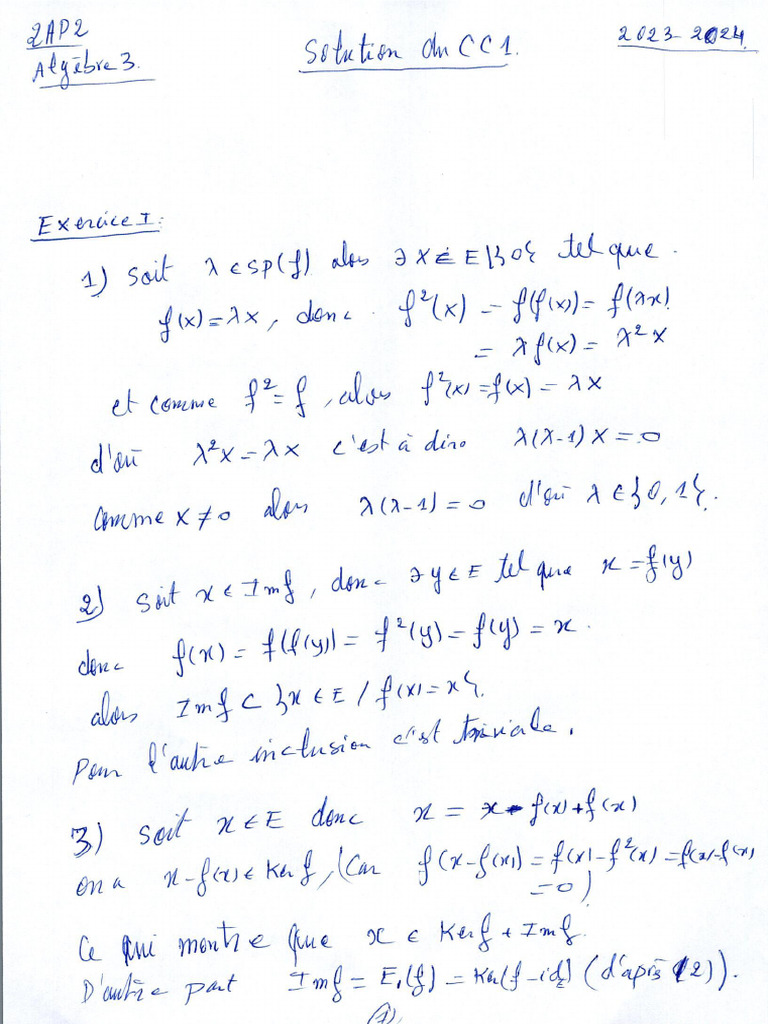 2AP2
Solution du CC1.
2023-2024
Algèbre 3.
Exercice I:
1) Soit λ ∈ Sp(f) alors ∃ X ∈ E\{0} tel que.
f(x) = λx, donc f²(x) = f(f(x)) = f(λx)
= λf(x) = λ²x
et comme f² = f, alors f²(x) = f(x) = λx
d'où λ²x = λx c'est à dire λ(λ-1)x = 0
comme x ≠ 0 alors λ(λ-1) = 0 d'où λ ∈ {0, 1}.
2) Soit x ∈ Imf, donc ∃ y ∈ E tel que x = f(y)
donc f(x) = f(f(y)) = f²(y) = f(y) = x.
alors Imf ⊂ {x ∈ E / f(x) = x}.
Pour l'autre inclusion c'est triviale.
3) Soit x ∈ E donc x = x - f(x) + f(x)
on a x - f(x) ∈ Kerf, (Car f(x - f(x)) = f(x) - f²(x) = f(x) - f(x)
= 0)
Ce qui montre que x ∈ Kerf + Imf.
D'autre part Imf = E₁(f) = Ker(f - id_E) (d'après (2)).
(1)